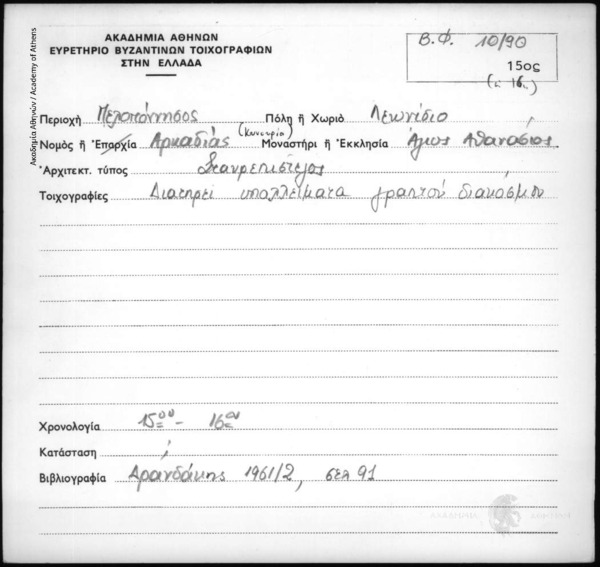 ΑΚΑΔΗΜΙΑ ΑΘΗΝΩΝ
ΕΥΡΕΤΗΡΙΟ ΒΥΖΑΝΤΙΝΩΝ ΤΟΙΧΟΓΡΑΦΙΩΝ
ΣΤΗΝ ΕΛΛΑΔΑ
Β.Φ. 10/90
15ος
(ἢ 16ος)
Ακαδημία Αθηνών / Academy of Athens
Περιοχή Πελοπόννησος Πόλη ἤ Χωριὸ Λεωνίδιο
Νομὸς ἤ Ἐπαρχία Αρκαδίας (Κυνουρία) Μοναστήρι ἤ Ἐκκλησία Άγιος Αθανάσιος
Ἀρχιτεκτ. τύπος Σταυρεπίστεγος
Τοιχογραφίες Διατηρεί υπολλείματα γραπτού διακόσμου
Χρονολογία 15ου - 16ου
Κατάσταση ;
Βιβλιογραφία Δρανδάκης 1961/2, σελ 91